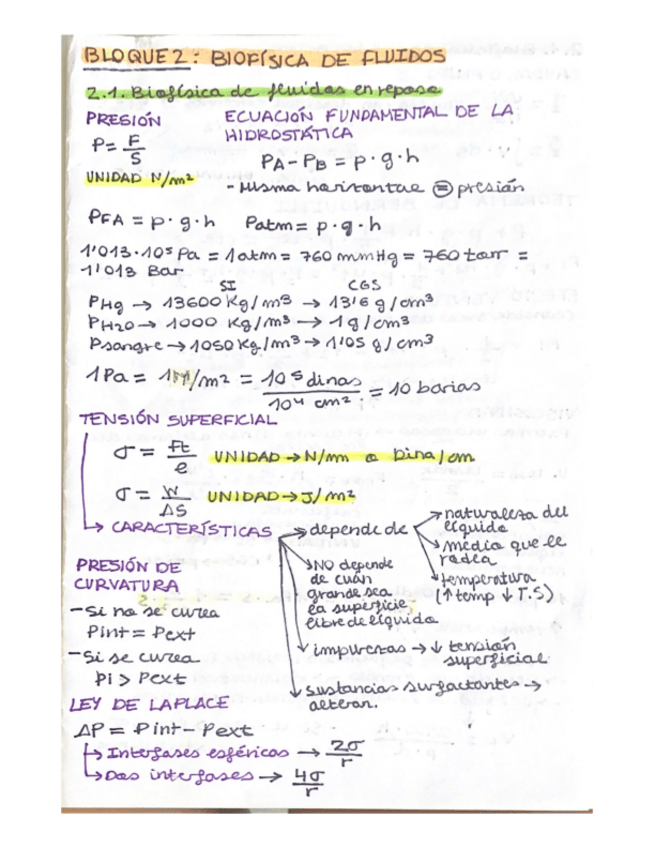 BLOQUE 2: BIOFÍSICA DE FLUIDOS
2.1. Biofísica de fluidos en reposo
PRESIÓN
P = F/S
UNIDAD N/m²
ECUACIÓN FUNDAMENTAL DE LA
HIDROSTÁTICA
PA - PB = ρ · g · h
- Misma horizontal = presión
PFA = ρ · g · h    Patm = ρ · g · h
1'013 · 10⁵ Pa = 1 atm = 760 mmHg = 760 torr =
1'013 Bar
SI    CGS
ρHg → 13600 Kg/m³ → 13'6 g/cm³
ρH2O → 1000 Kg/m³ → 1 g/cm³
ρsangre → 1050 Kg/m³ → 1'05 g/cm³
1 Pa = 1N/m² = 10⁵ dinas / 10⁴ cm² = 10 barias
TENSIÓN SUPERFICIAL
σ = ft/l    UNIDAD → N/m o Dina/cm
σ = W/ΔS    UNIDAD → J/m²
CARACTERÍSTICAS
→ depende de
→ naturaleza del
líquido
→ medio que le
rodea
→ temperatura
(↑ temp ↓ T.S)
NO depende
de cuán
grande sea
la superficie
libre de líquido
impurezas → ↓ tensión
superficial
sustancias surfactantes →
alteran.
PRESIÓN DE
CURVATURA
- Si no se curva
Pint = Pext
- Si se curva
Pi > Pext
LEY DE LAPLACE
ΔP = Pint - Pext
→ Interfases esféricos → 2σ/r
→ Dos interfases → 4σ/r